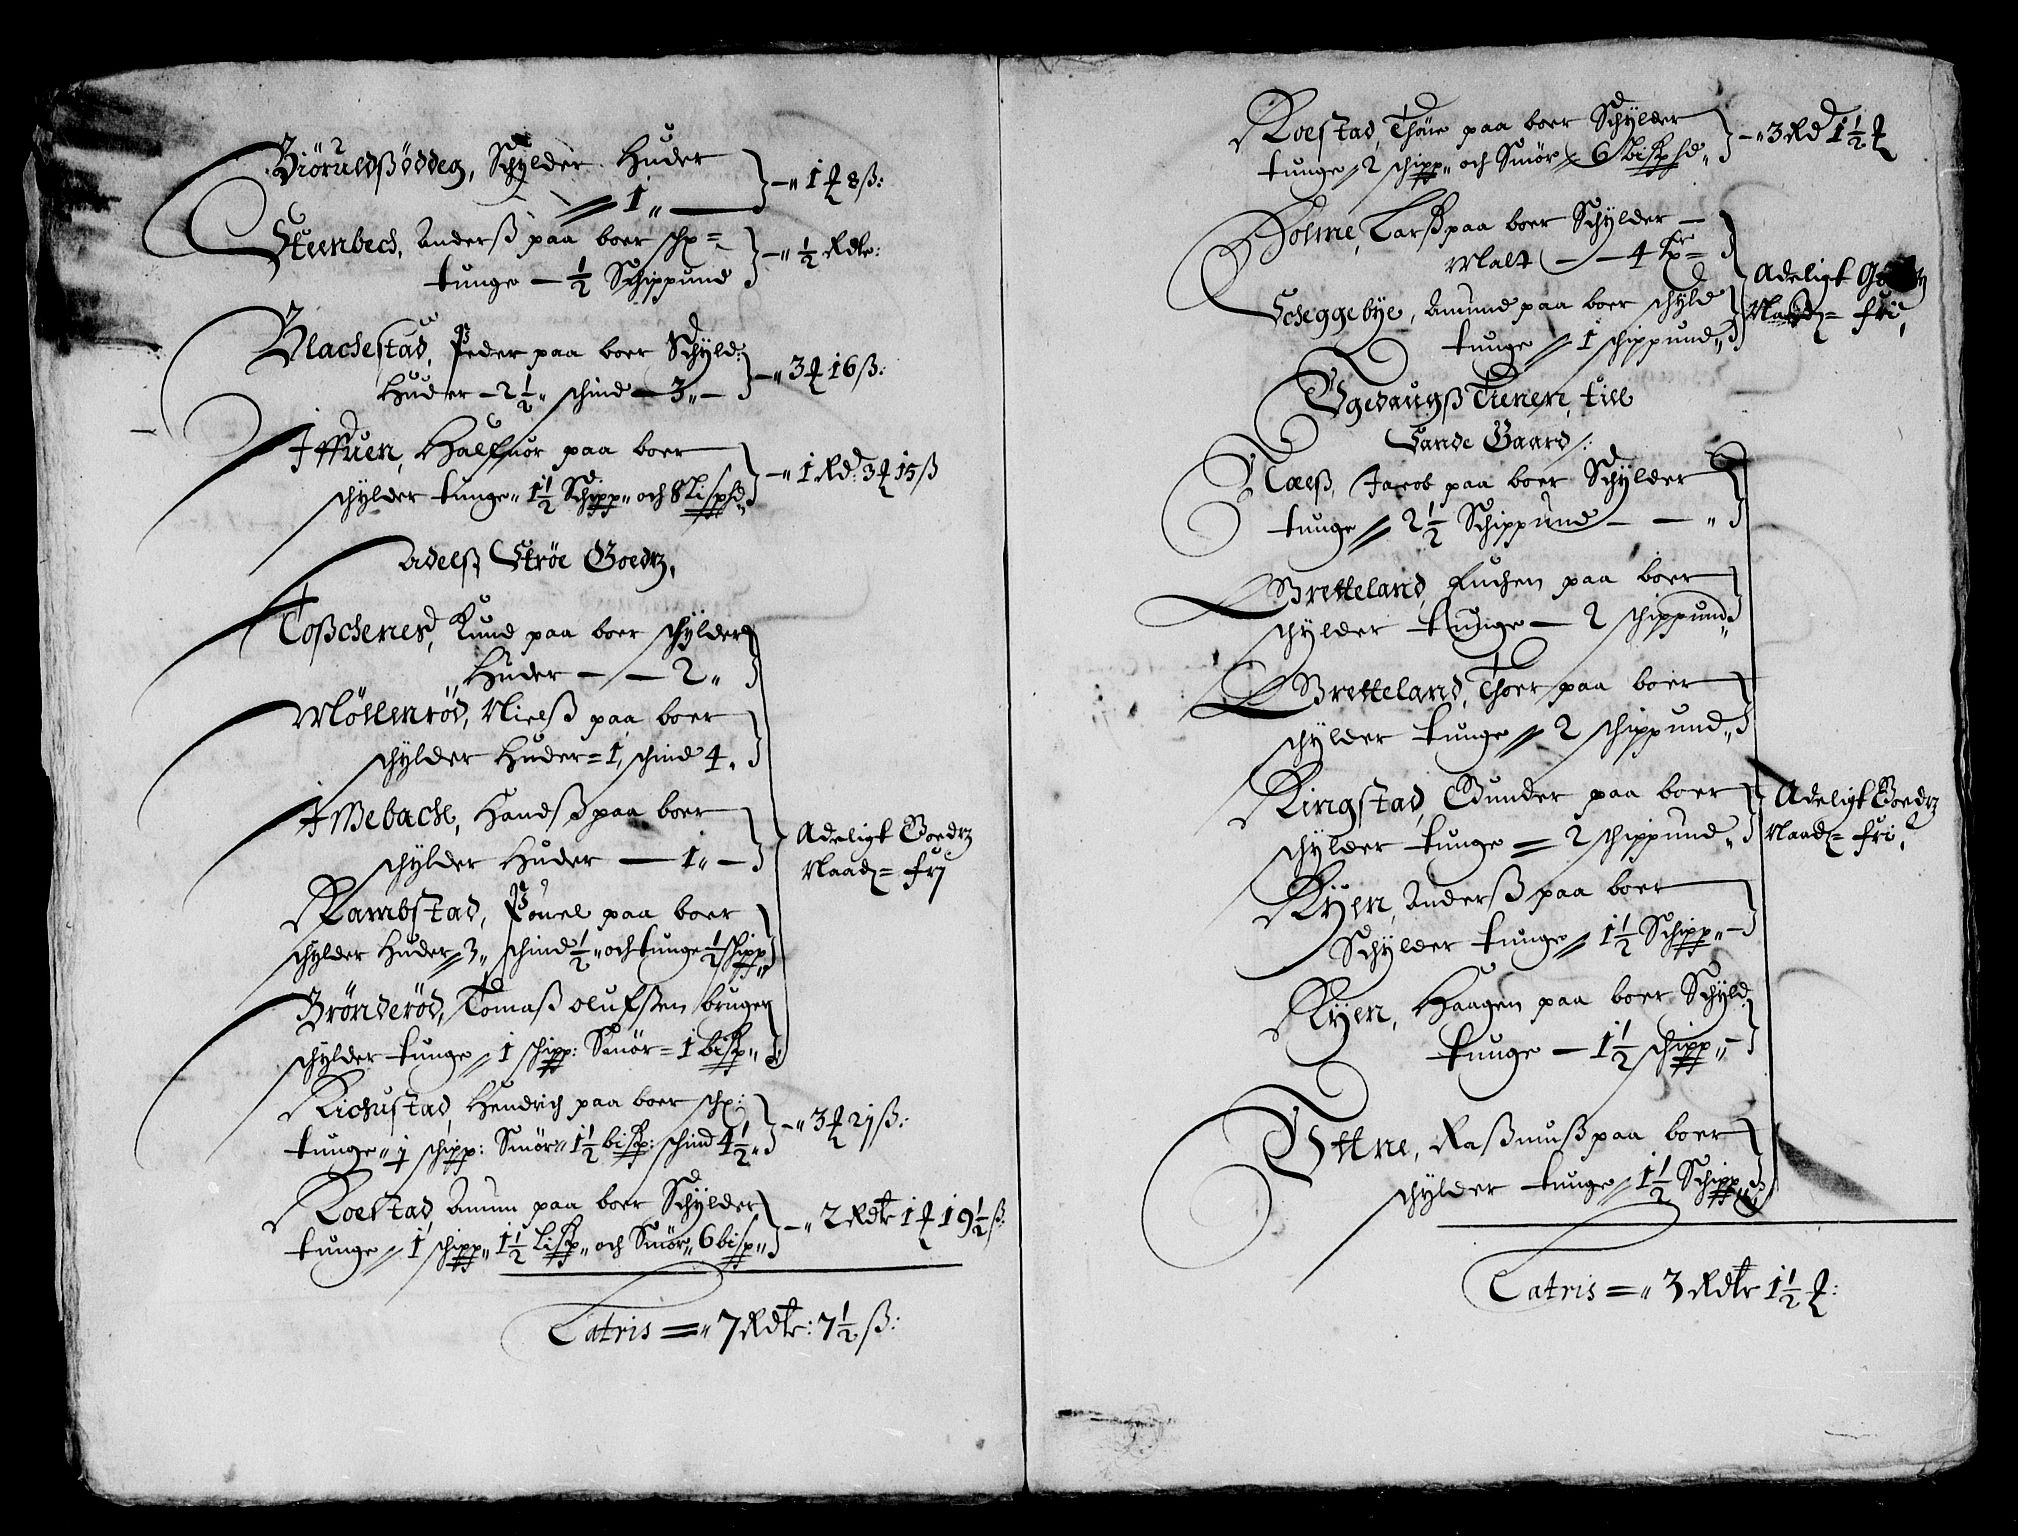 Biöruldßöddeg, Schylder Huder
1 „ — „ 1 ꝗ 8 ß:
Steenbech, Anderß paa boer schp=
tunge — ½ Schippund — „ ½ Rdlr:
Blachestad, Peder paa boer Schyld:
Huder — 2½ „ schind — 3 „ — „ 3 ꝗ 16 ß:
Iffuen, Halfuor paa boer
schylder tunge „ 1½ Schipp „ och 8 Lispd „ — „ 1 Rd: 3 ꝗ 15 ß
Adelß Strøe Goedz,
Toßchened, Knud paa boer schylder
Huder — — 2 „
Möllenröd, Nielß paa boer
schylder Huder = 1, schind 4 „
Ißebach, Handß paa boer
schylder Huder — 1 „ —
Adeligt Goedz
Naadz= frj
Rambstad, Pouel paa boer
schylder Huder 3 „ schind ½ „ och tunge ½ schipp
Brönderöd, Tomaß Olufßen bruger
schylder tunge 1 schipp: Smör = 1 bißp „
Richustad, Hendrich paa boer schp:
tunge „ j schipp: Smör „ 1½ bißp: schind 4½ „ — „ 3 ꝗ 2j ß:
Roestad, Amun paa boer Schylder
tunge 1 schipp „ 1½ Lißp „ och Smör „ 6 bißp „ — „ 2 Rdlr 1 ꝗ 19½ ß:
Latris = „ 7 Rdlr: 7½ ß:
Roestad, Thöue paa boer Schylder
tunge 2 schipp „ och Smör 6 bißpd „ — „ 3 Rd 1½ ꝗ
Holme, Larß paa boer Schylder —
Malt — — 4 =
Scheggebye, Amund paa boer schyld
tunge 1 schippund „
Adeligt
fri,
Ugedaugß Tienen, till
Sande Gaard:
Næß, Jacob paa boer Schylder
tunge 2½ Schippund — — „
Bretteland, Luchen paa boer
schylder tunge — 2 schippund „
Bretteland, Thoer paa boer
schylder tunge 2 schippund „
Ringstad, Gunder paa boer
schylder tunge = 2 schippund „
Adeligt Goedz
Naadz= fri,
Ryen, Anderß paa boer
Schylder tunge 1½ Schipp „ —
Ryen, Haagen paa boer Schyld:
tunge — 1½ schipp „ —
Uttne, Raßmuß paa boer
schylder tunge 1½ Schipp „
Latris = „ 3 Rdlr 1½ ꝗ: